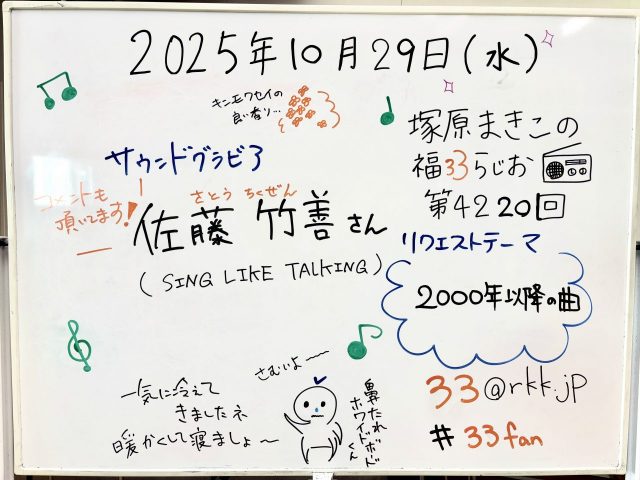 2025年10月29日(水)
キンモクセイの
良い香り…
塚原まきこの
福33らじお
第4220回
サウンドグラビア
コメントも
頂いてます!
さとう ちくぜん
佐藤 竹善さん
(SING LIKE TALKING)
リクエストテーマ
2000年以降の曲
33@rkk.jp
#33fan
一気に冷えて
きましたネ
暖かくして寝ましょ〜
さむいよ〜
鼻たれ
ホワイトボード
くん